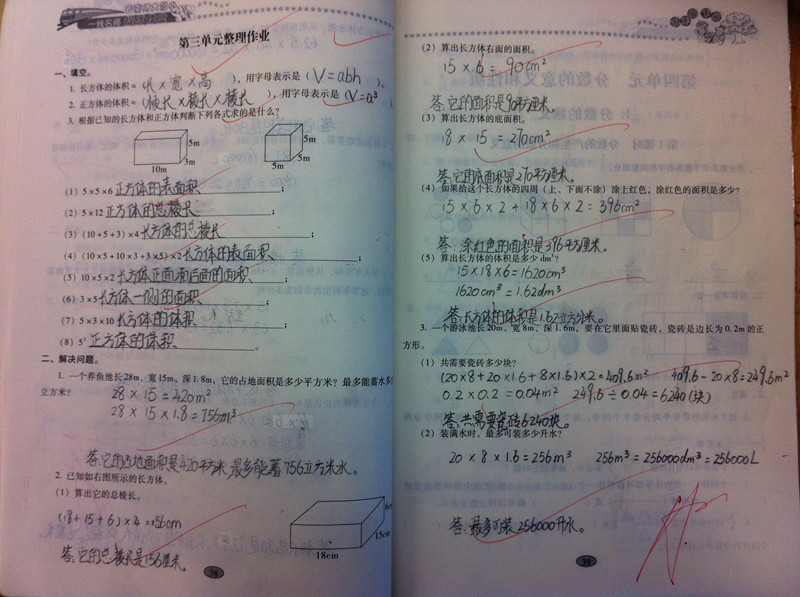 第三单元整理作业
一、填空。
1. 长方体的体积=（长×宽×高），用字母表示是（V=abh）。
2. 正方体的体积=（棱长×棱长×棱长），用字母表示是（V=a³）
3. 根据已知的长方体和正方体判断下列各式求的是什么？
5m
3m
10m
5m
5m
（1）5×5×6 正方体的表面积；
（2）5×12 正方体的总棱长；
（3）（10+5+3）×4 长方体的总棱长；
（4）（10×5+10×3+3×5）×2 长方体的表面积；
（5）10×5×2 长方体正面和后面的面积；
（6）3×5 长方体一侧的面积；
（7）5×3×10 长方体的体积；
（8）5³ 正方体的体积。
二、解决问题。
1. 一个养鱼池长28m、宽15m、深1.8m，它的占地面积是多少平方米？最多能蓄水多
立方米？
28×15=420m²
28×15×1.8=756m³
答：它的占地面积是420平方米，最多能蓄756立方米水。
2. 已知如右图所示的长方体。
（1）算出它的总棱长。
(18+15+6)×4=156cm
答：它的总棱长是156厘米。
15cm
18cm
38
（2）算出长方体右面的面积。
15×6=90cm²
答：它的面积是90平方厘米。
（3）算出长方体的底面积。
18×15=270cm²
答：它的底面积是270平方厘米。
（4）如果给这个长方体的四周（上、下面不涂）涂上红色，涂红色的面积是多少？
15×6×2+18×6×2=396cm²
答：涂红色的面积是396平方厘米。
（5）算出长方体的体积是多少dm³？
15×18×6=1620cm³
1620cm³=1.62dm³
答：长方体的体积是1.62立方分米。
3. 一个游泳池长20m、宽8m、深1.6m，要在它里面贴瓷砖，瓷砖是边长为0.2m的正
方形。
（1）共需要瓷砖多少块？
(20×8+20×1.6+8×1.6)×2=409.6m² 409.6-20×8=249.6m²
0.2×0.2=0.04m² 249.6÷0.04=6240(块)
答：共需要瓷砖6240块。
（2）装满水时，最多可装多少升水？
20×8×1.6=256m³ 256m³=256000dm³=256000L
答：最多可装256000升水。
39